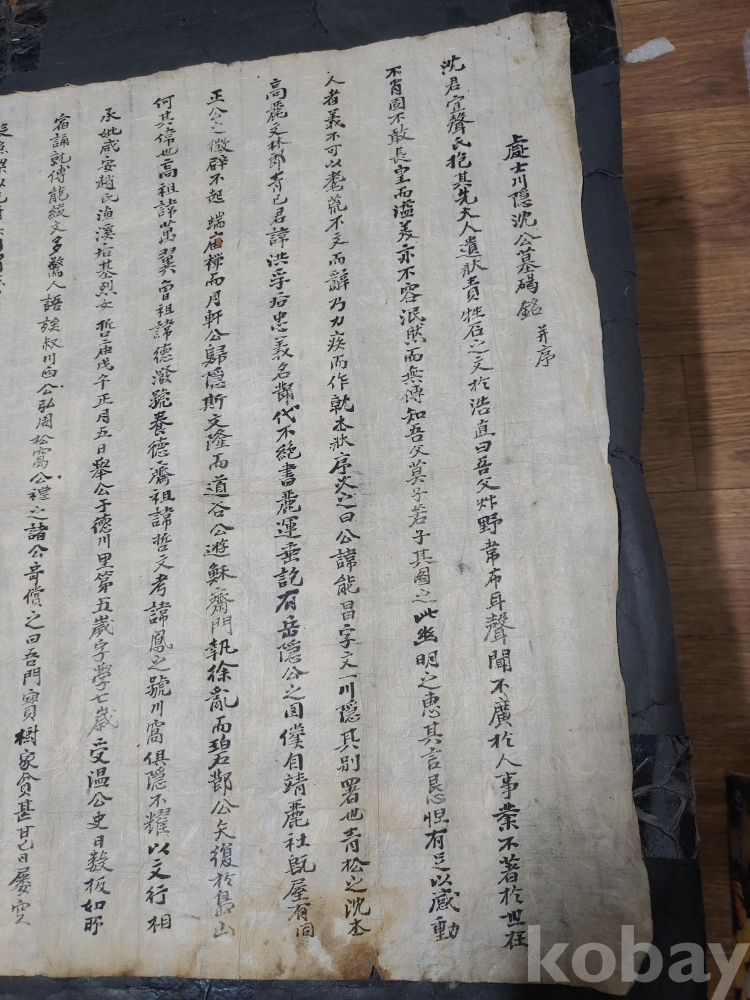 處士川隱沈公墓碣銘 并序
沈君宜聲氏抱其先大人遺狀責牲石之文於浩直曰吾父炸野常布耳聲聞不廣於人事業不著於世在
不肖固不敢長皇而溢美亦不容泯然而無傳知吾父莫子若子其圖之此幽明之惠其言艮心怛有足以感動
人者義不可以耄荒不文而辭乃力疾而作就本狀序次之曰公諱能昌字文一川隱其別署也靑松之沈本
高麗文林郞靑己君諱洪孚后忠義名鄕代不絶書麗運垂訖有岳隱公之罔僕自靖麗社旣屋有
正公之徵辟不起 端廟禪而月軒公歸隱斯文隆而道谷公遊穌齋門執徐亂而珀石鄕公矢復於島山
何其偉也高祖諱萬翼曾祖諱德潑號養德齋祖諱哲文考諱鳳之號川窩俱隱不耀以文行相
承妣咸安趙氏漁溪后基烈女 哲廟戊午正月五日擧公于德川里第五歲字學七歲受溫公史日數板如
宿誦旣傅能綴文多驚人語 族叔川西公弘周松窩公禮之諸公奇償之曰吾門寶樹家貧甚甘旨屢空